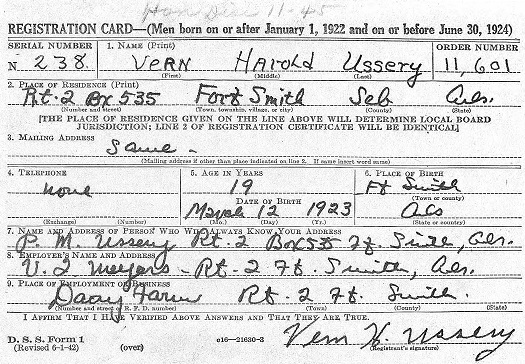 Hon Dis 11-45
REGISTRATION CARD—(Men born on or after January 1, 1922 and on or before June 30, 1924)
SERIAL NUMBER 1. NAME (Print) ORDER NUMBER
N 238. Vern Harold Ussery 11,601
(First) (Middle) (Last)
2. PLACE OF RESIDENCE (Print)
Rt. 2 Bx 535 Fort Smith Seb Ark.
(Number and street) (Town, township, village, or city) (County) (State)
[THE PLACE OF RESIDENCE GIVEN ON THE LINE ABOVE WILL DETERMINE LOCAL BOARD
JURISDICTION; LINE 2 OF REGISTRATION CERTIFICATE WILL BE IDENTICAL]
3. MAILING ADDRESS
Same -
(Mailing address if other than place indicated on line 2. If same insert word same)
4. TELEPHONE 5. AGE IN YEARS 6. PLACE OF BIRTH
none 19 Ft Smith
DATE OF BIRTH (Town or county)
March 12 1923 Ark
(Exchange) (Number) (Mo.) (Day) (Yr.) (State or country)
7. NAME AND ADDRESS OF PERSON WHO WILL ALWAYS KNOW YOUR ADDRESS
P. M. Ussery Rt. 2 Box 535 Ft. Smith, Ark.
8. EMPLOYER'S NAME AND ADDRESS
Meyers - Rt. 2 Ft. Smith, Ark.
9. PLACE OF EMPLOYMENT OR BUSINESS
Farm Rt. 2 Ft. Smith.
(Number and street or R. F. D. number) (Town) (County) (State)
I AFFIRM THAT I HAVE VERIFIED ABOVE ANSWERS AND THAT THEY ARE TRUE.
D. S. S. Form 1
(Revised 6-1-42) (over) c16—21630-3 Vern H. Ussery
(Registrant's signature)